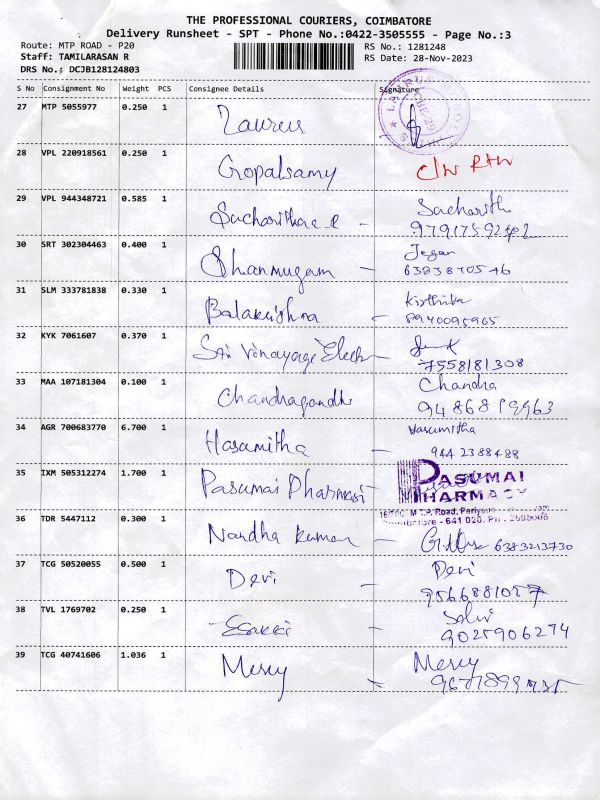 THE PROFESSIONAL COURIERS, COIMBATORE
Delivery Runsheet - SPT - Phone No.:0422-3505555 - Page No.:3
Route: MTP ROAD - P20 RS No.: 1281248
Staff: TAMILARASAN R RS Date: 28-Nov-2023
DRS No.: DCJB128124803
S No Consignment No Weight PCS Consignee Details Signature
27 MTP 5055977 0.250 1
28 VPL 220918561 0.250 1
Gopalsamy
29 VPL 944348721 0.585 1
30 SRT 302304463 0.400 1
Shanmugam - Jegan
6383870546
31 SLM 333781838 0.330 1
Balakrishna - Kirthika
8940095965
32 KYK 7061607 0.370 1
Sri Vinayaga
7558181308
33 MAA 107181304 0.100 1
Chandragandhi Chandra
34 AGR 700683770 6.700 1
Hasamitha -
944 2388488
35 IXM 505312274 1.700 1
Pasumai PASUMAI
PHARMACY
M.T.P. Road,
641 020.
36 TDR 5447112 0.300 1
Nandha Kumar - 6383213730
37 TCG 50520055 0.500 1
Devi - Devi
38 TVL 1769702 0.250 1
Esakki - Selvi
9025906274
39 TCG 40741606 1.036 1
Mercy - Mercy